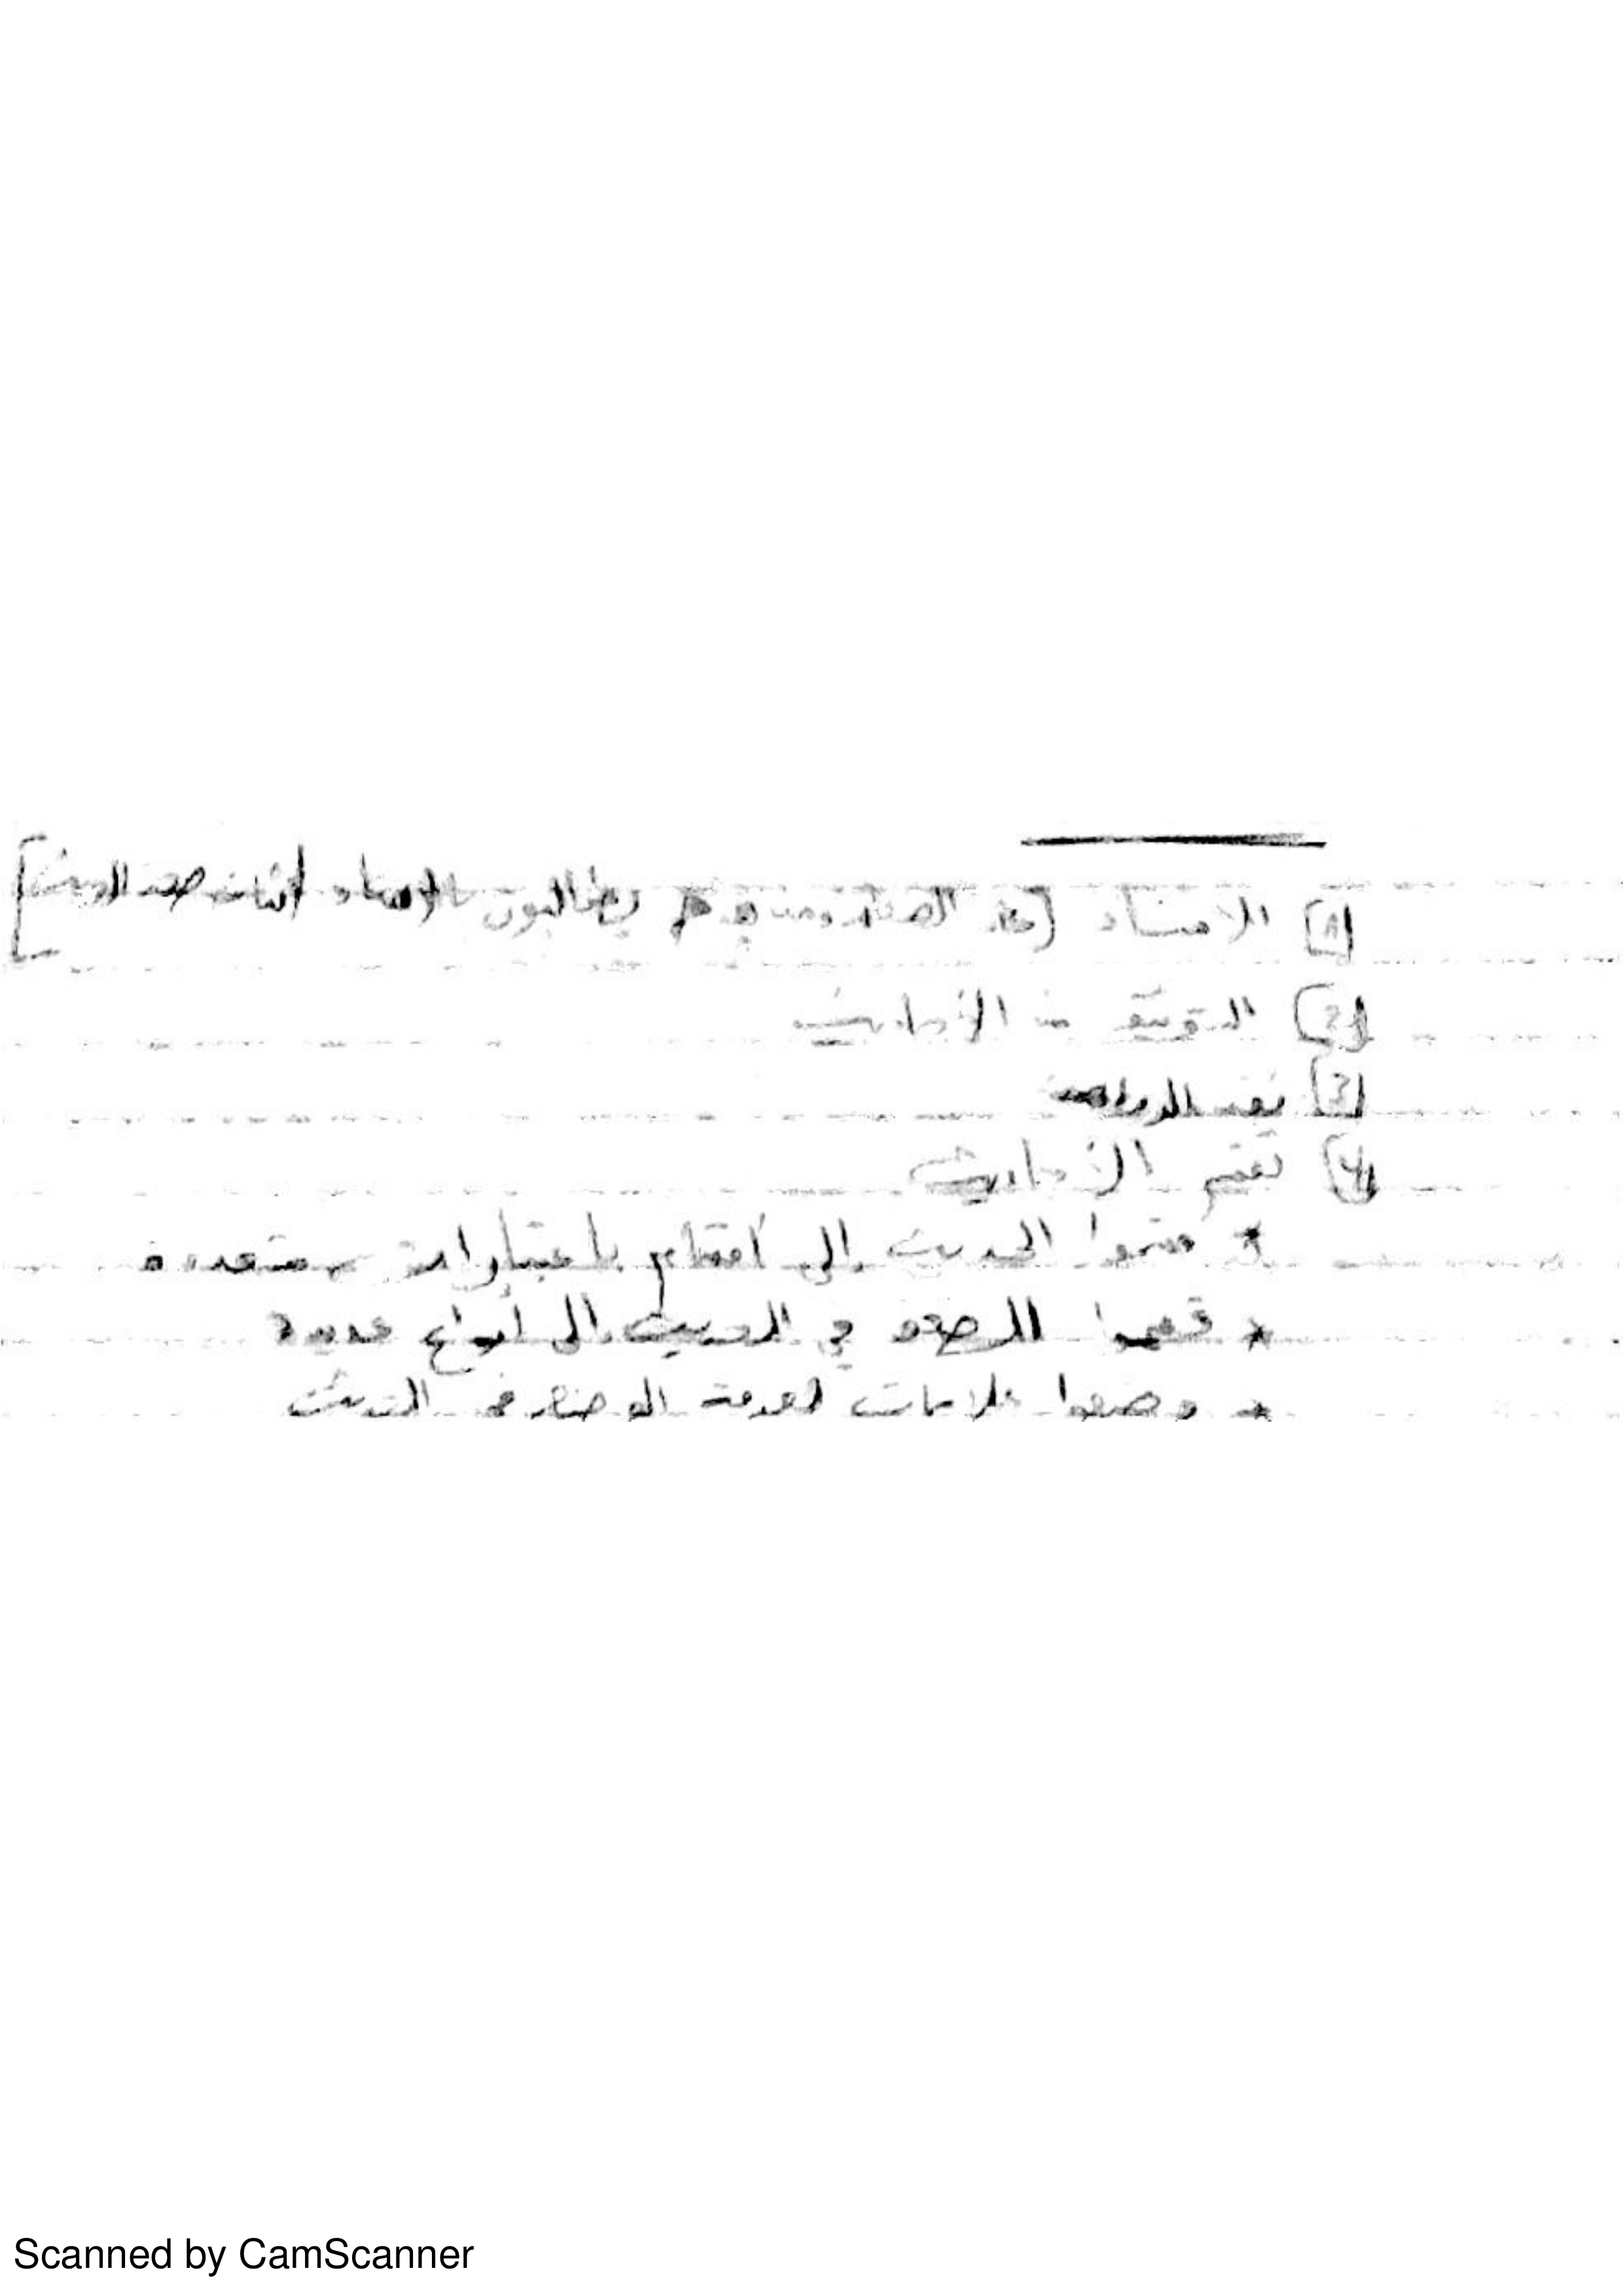 [1] الاسناد [ الصحابة ومن يطالبون بالإسناد لإثبات صحة الحديث]
[2] التوثيق من الأحاديث
[3] نقد الرواة
[4] تقسيم الأحاديث
* قسموا الحديث إلى أقسام باعتبارات متعددة
* قسموا الضعف في الحديث إلى أنواع عديدة
* وضعوا علامات لمعرفة الوضع في الحديث
Scanned by CamScanner